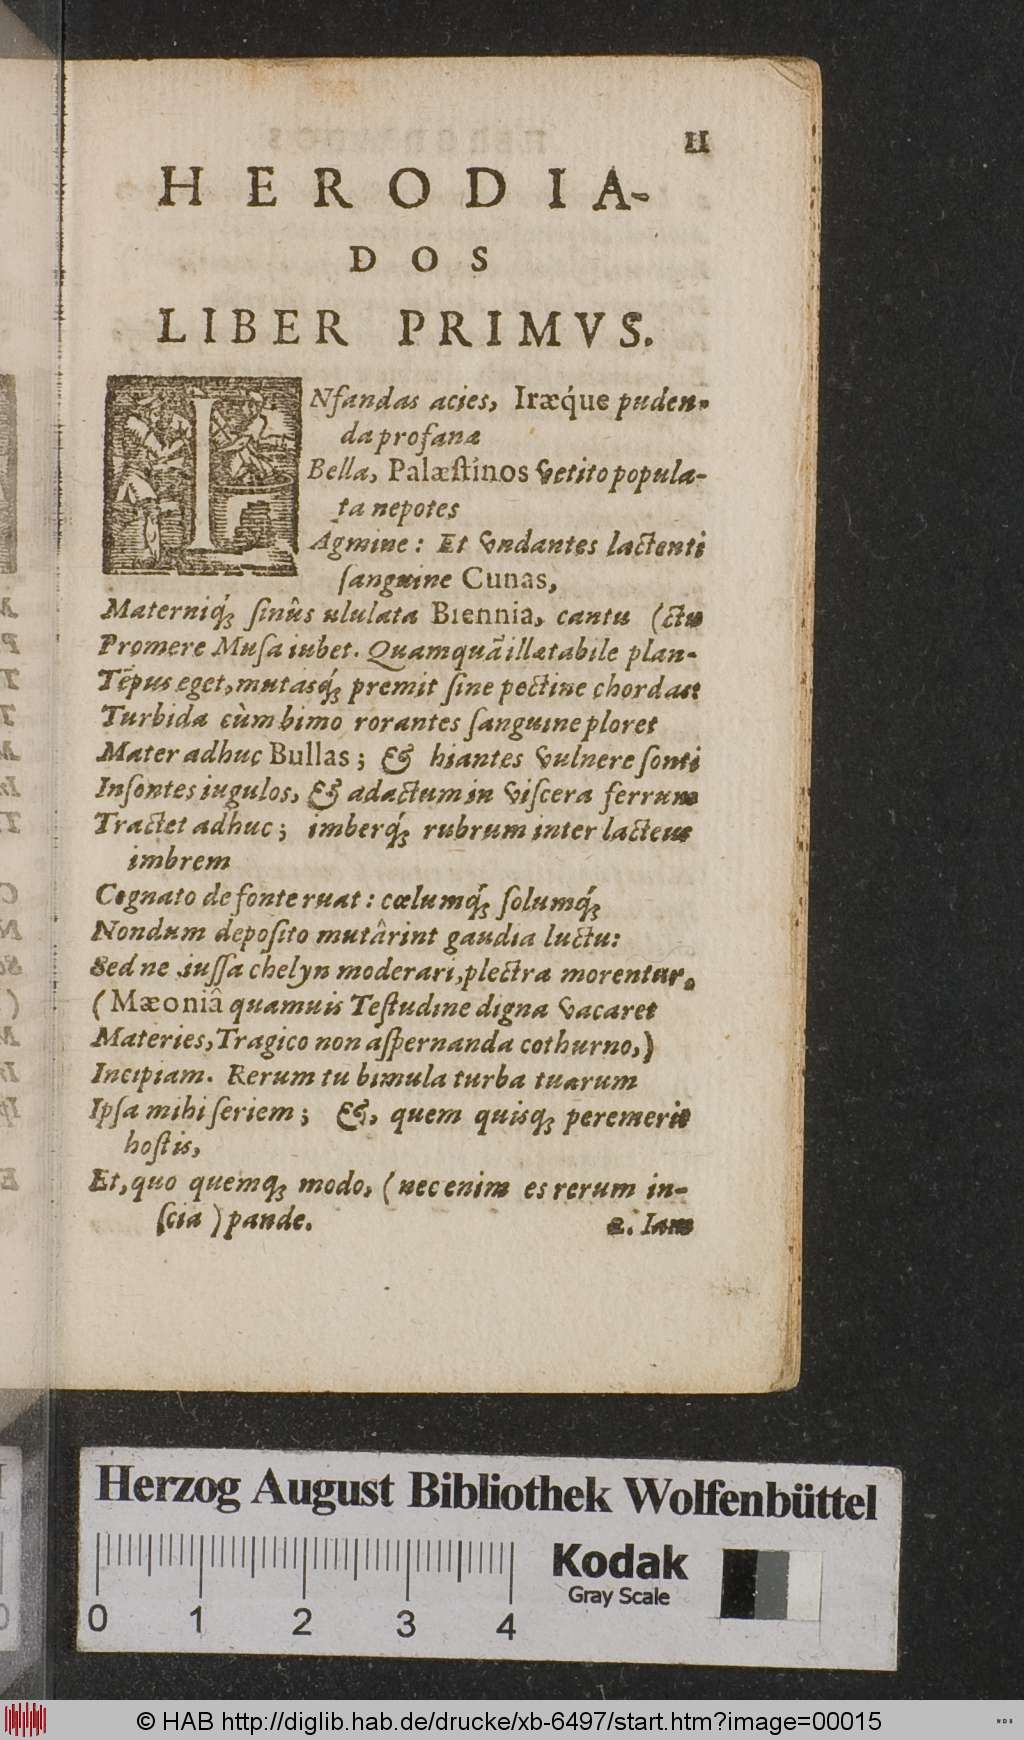 11
HERODIA-
DOS
LIBER PRIMVS.
INfandas acies, Iræq́ue puden-
da profanæ
Bella, Palæſtinos vetito popula-
ta nepotes
Agmine: Et vndantes lactenti
ſanguine Cunas,
Materniq́; ſinûs ululata Biennia, cantu (ctu
Promere Muſa iubet. Quamquã illætabile plan-
Tẽpus eget, mutasq́; premit ſine pectine chordas:
Turbida cùm bimo rorantes ſanguine ploret
Mater adhuc Bullas; & hiantes vulnere ſonti
Inſontes iugulos, & adactum in viſcera ferrum
Tractet adhuc; imberq́; rubrum inter lacteus
imbrem
Cognato de fonte ruat: cœlumq́; ſolumq́;
Nondum depoſito mutârint gaudia luctu:
Sed ne iuſſa chelyn moderari, plectra morentur.
(Mæoniâ quamuis Teſtudine digna vacaret
Materies, Tragico non aſpernanda cothurno,)
Incipiam. Rerum tu bimula turba tuarum
Ipſa mihi ſeriem; &, quem quisq; peremerit
hoſtis,
Et, quo quemq; modo, (nec enim es rerum in-
ſcia) pande.
2. Iam
Herzog August Bibliothek Wolfenbüttel
Kodak
Gray Scale
0 1 2 3 4
© HAB http://diglib.hab.de/drucke/xb-6497/start.htm?image=00015